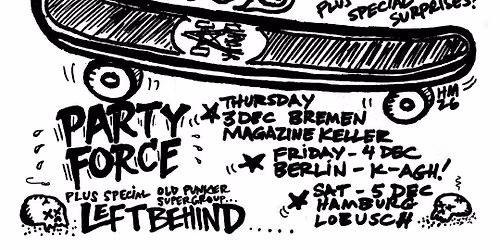 PLUS
SPECIAL
SURPRISES!
HM
26
PARTY
FORCE
THURSDAY
3 DEC BREMEN
MAGAZINE KELLER
FRIDAY - 4 DEC
BERLIN - K-AGH!
SAT - 5 DEC
HAMBURG
LOBUSCH
PLUS SPECIAL OLD PUNKER
SUPERGROUP...
LEFT BEHIND.....